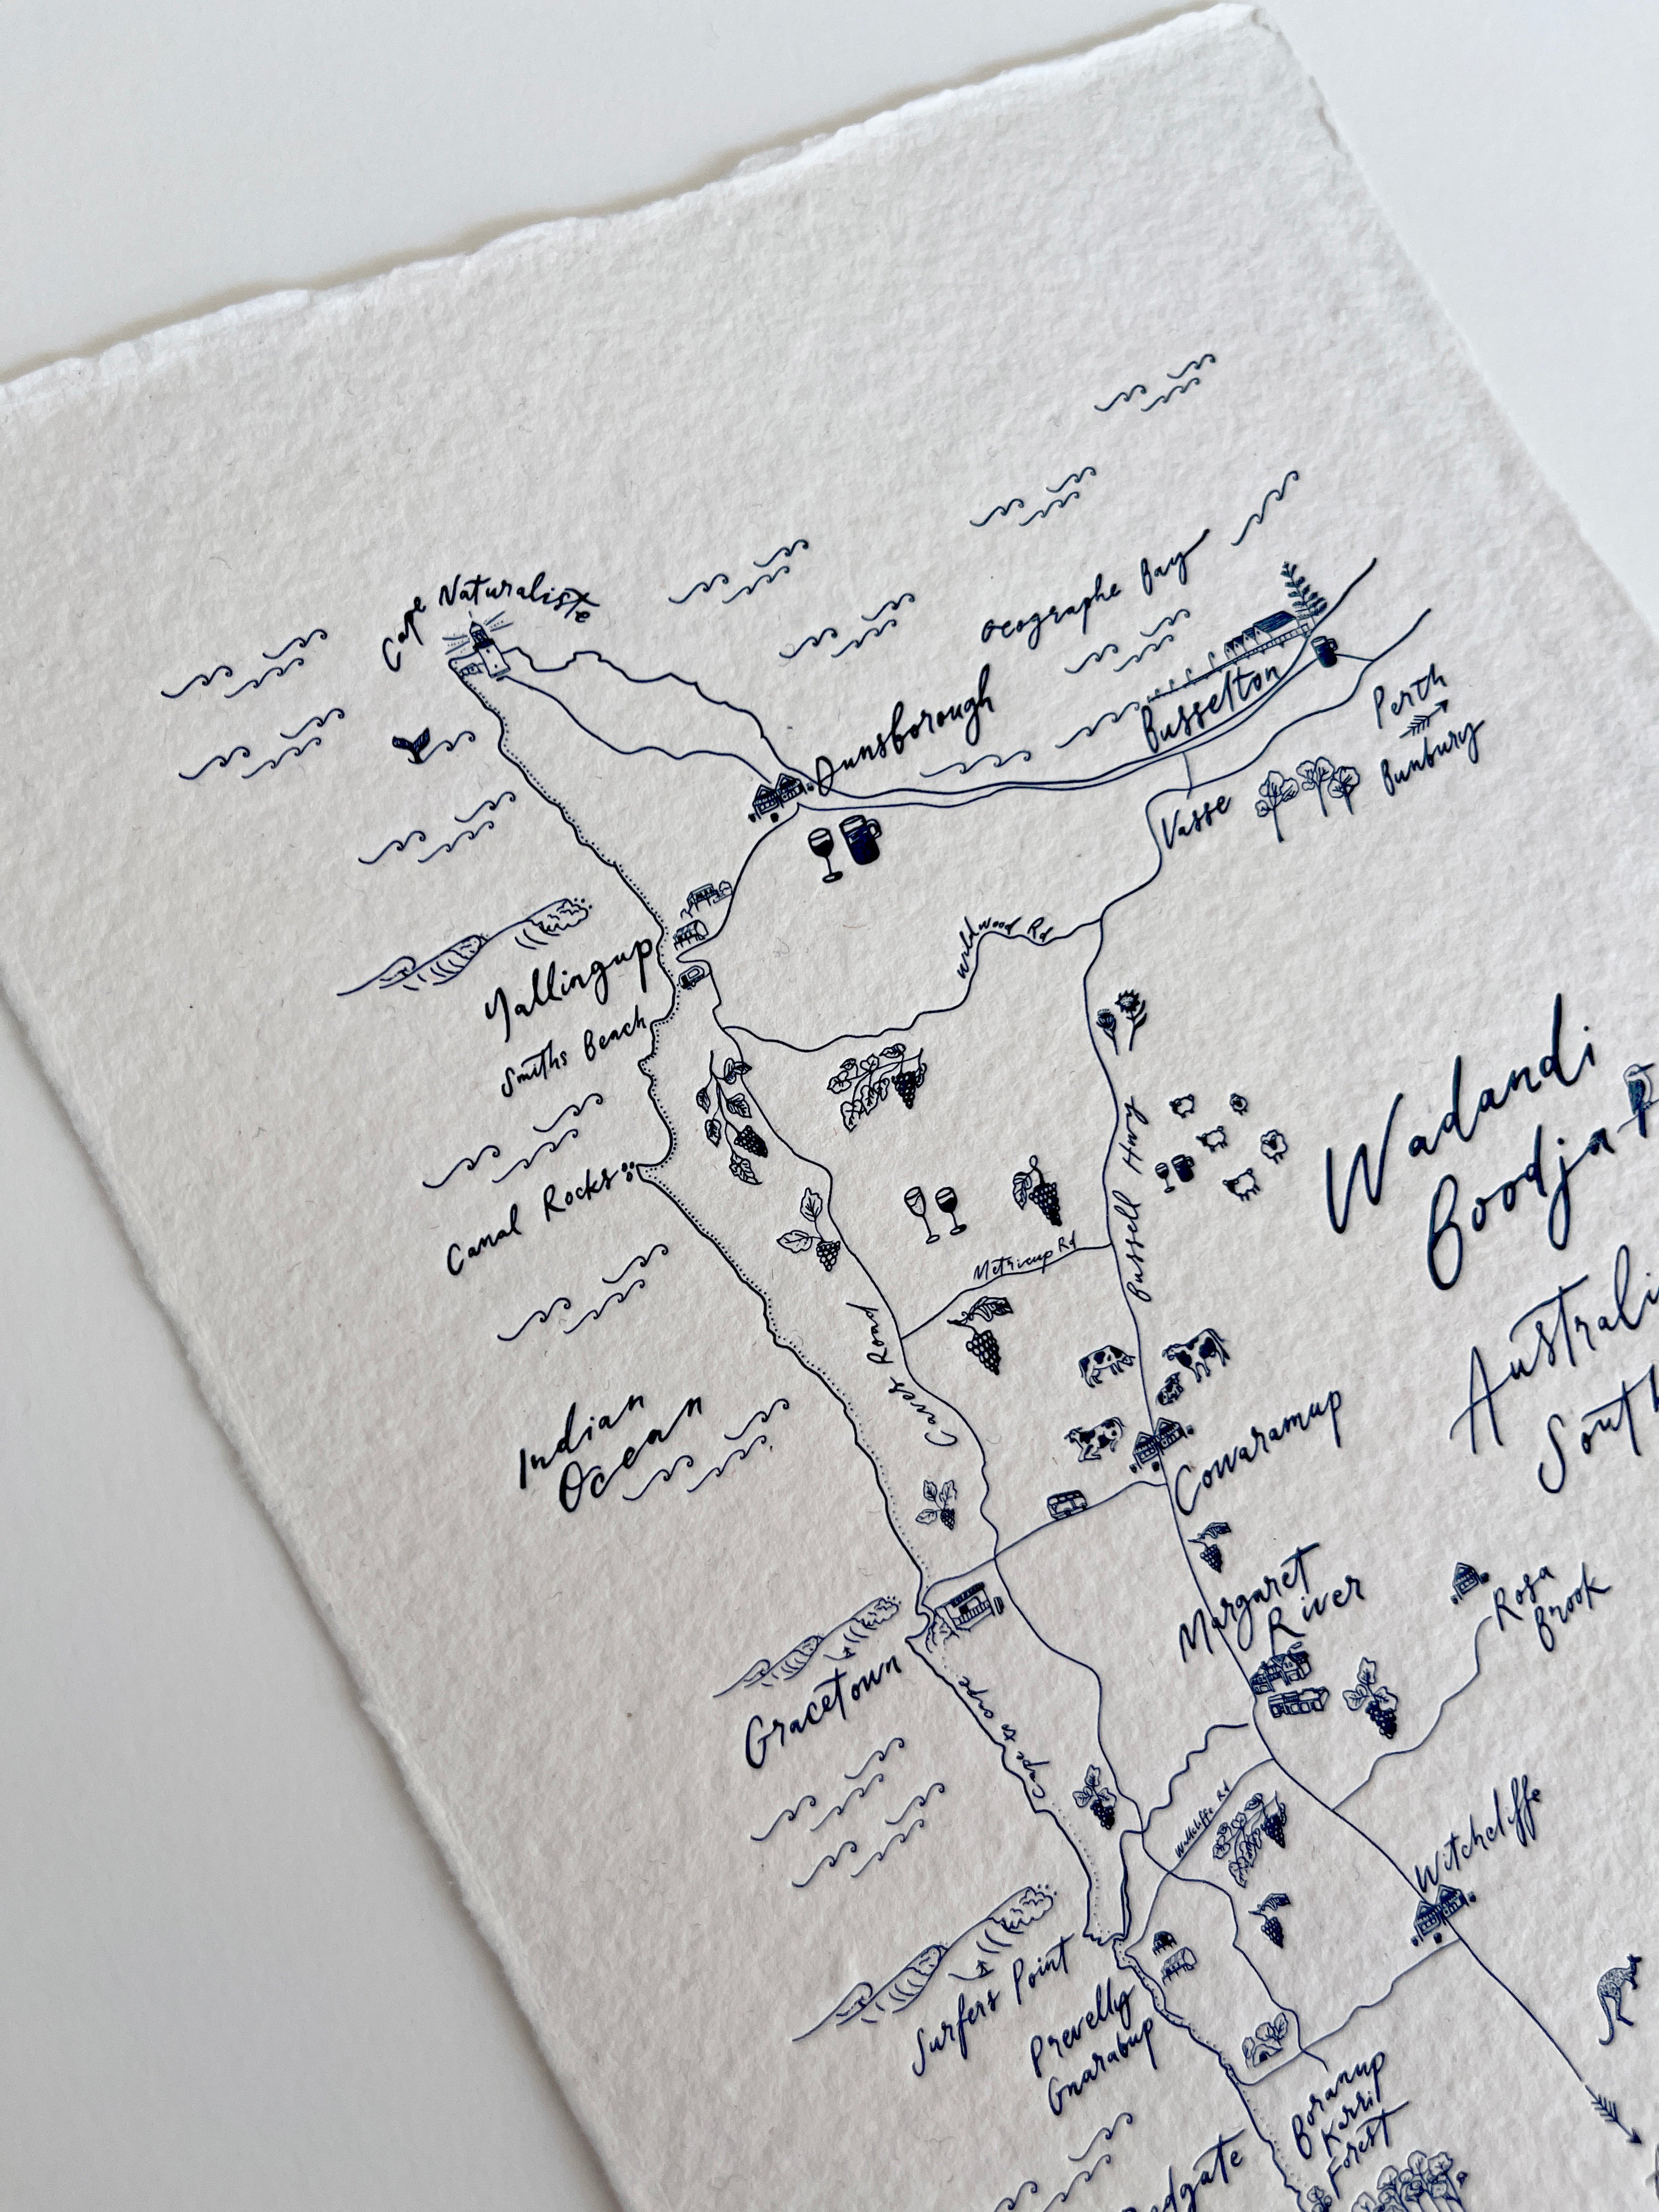 Cape Naturaliste
Geographe Bay
Dunsborough
Busselton
Perth
Bunbury
Vasse
Wildwood Rd
Yallingup
Smiths Beach
Canal Rocks
Bussell Hwy
Wadandi
Boodja
Metricup Rd
Caves Road
Indian
Ocean
Cowaramup
Margaret
River
Rosa
Brook
Gracetown
Cape to Cape
Wallcliffe Rd
Witchcliffe
Surfers Point
Prevelly
Gnarabup
Boranup
Karri
Forest